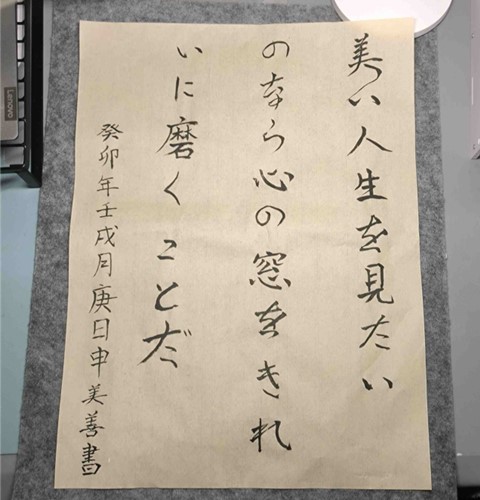 美い人生を見たい
のなら心の窓をきれ
いに磨くことだ
癸卯年壬戌月庚日申美善書
Lenovo